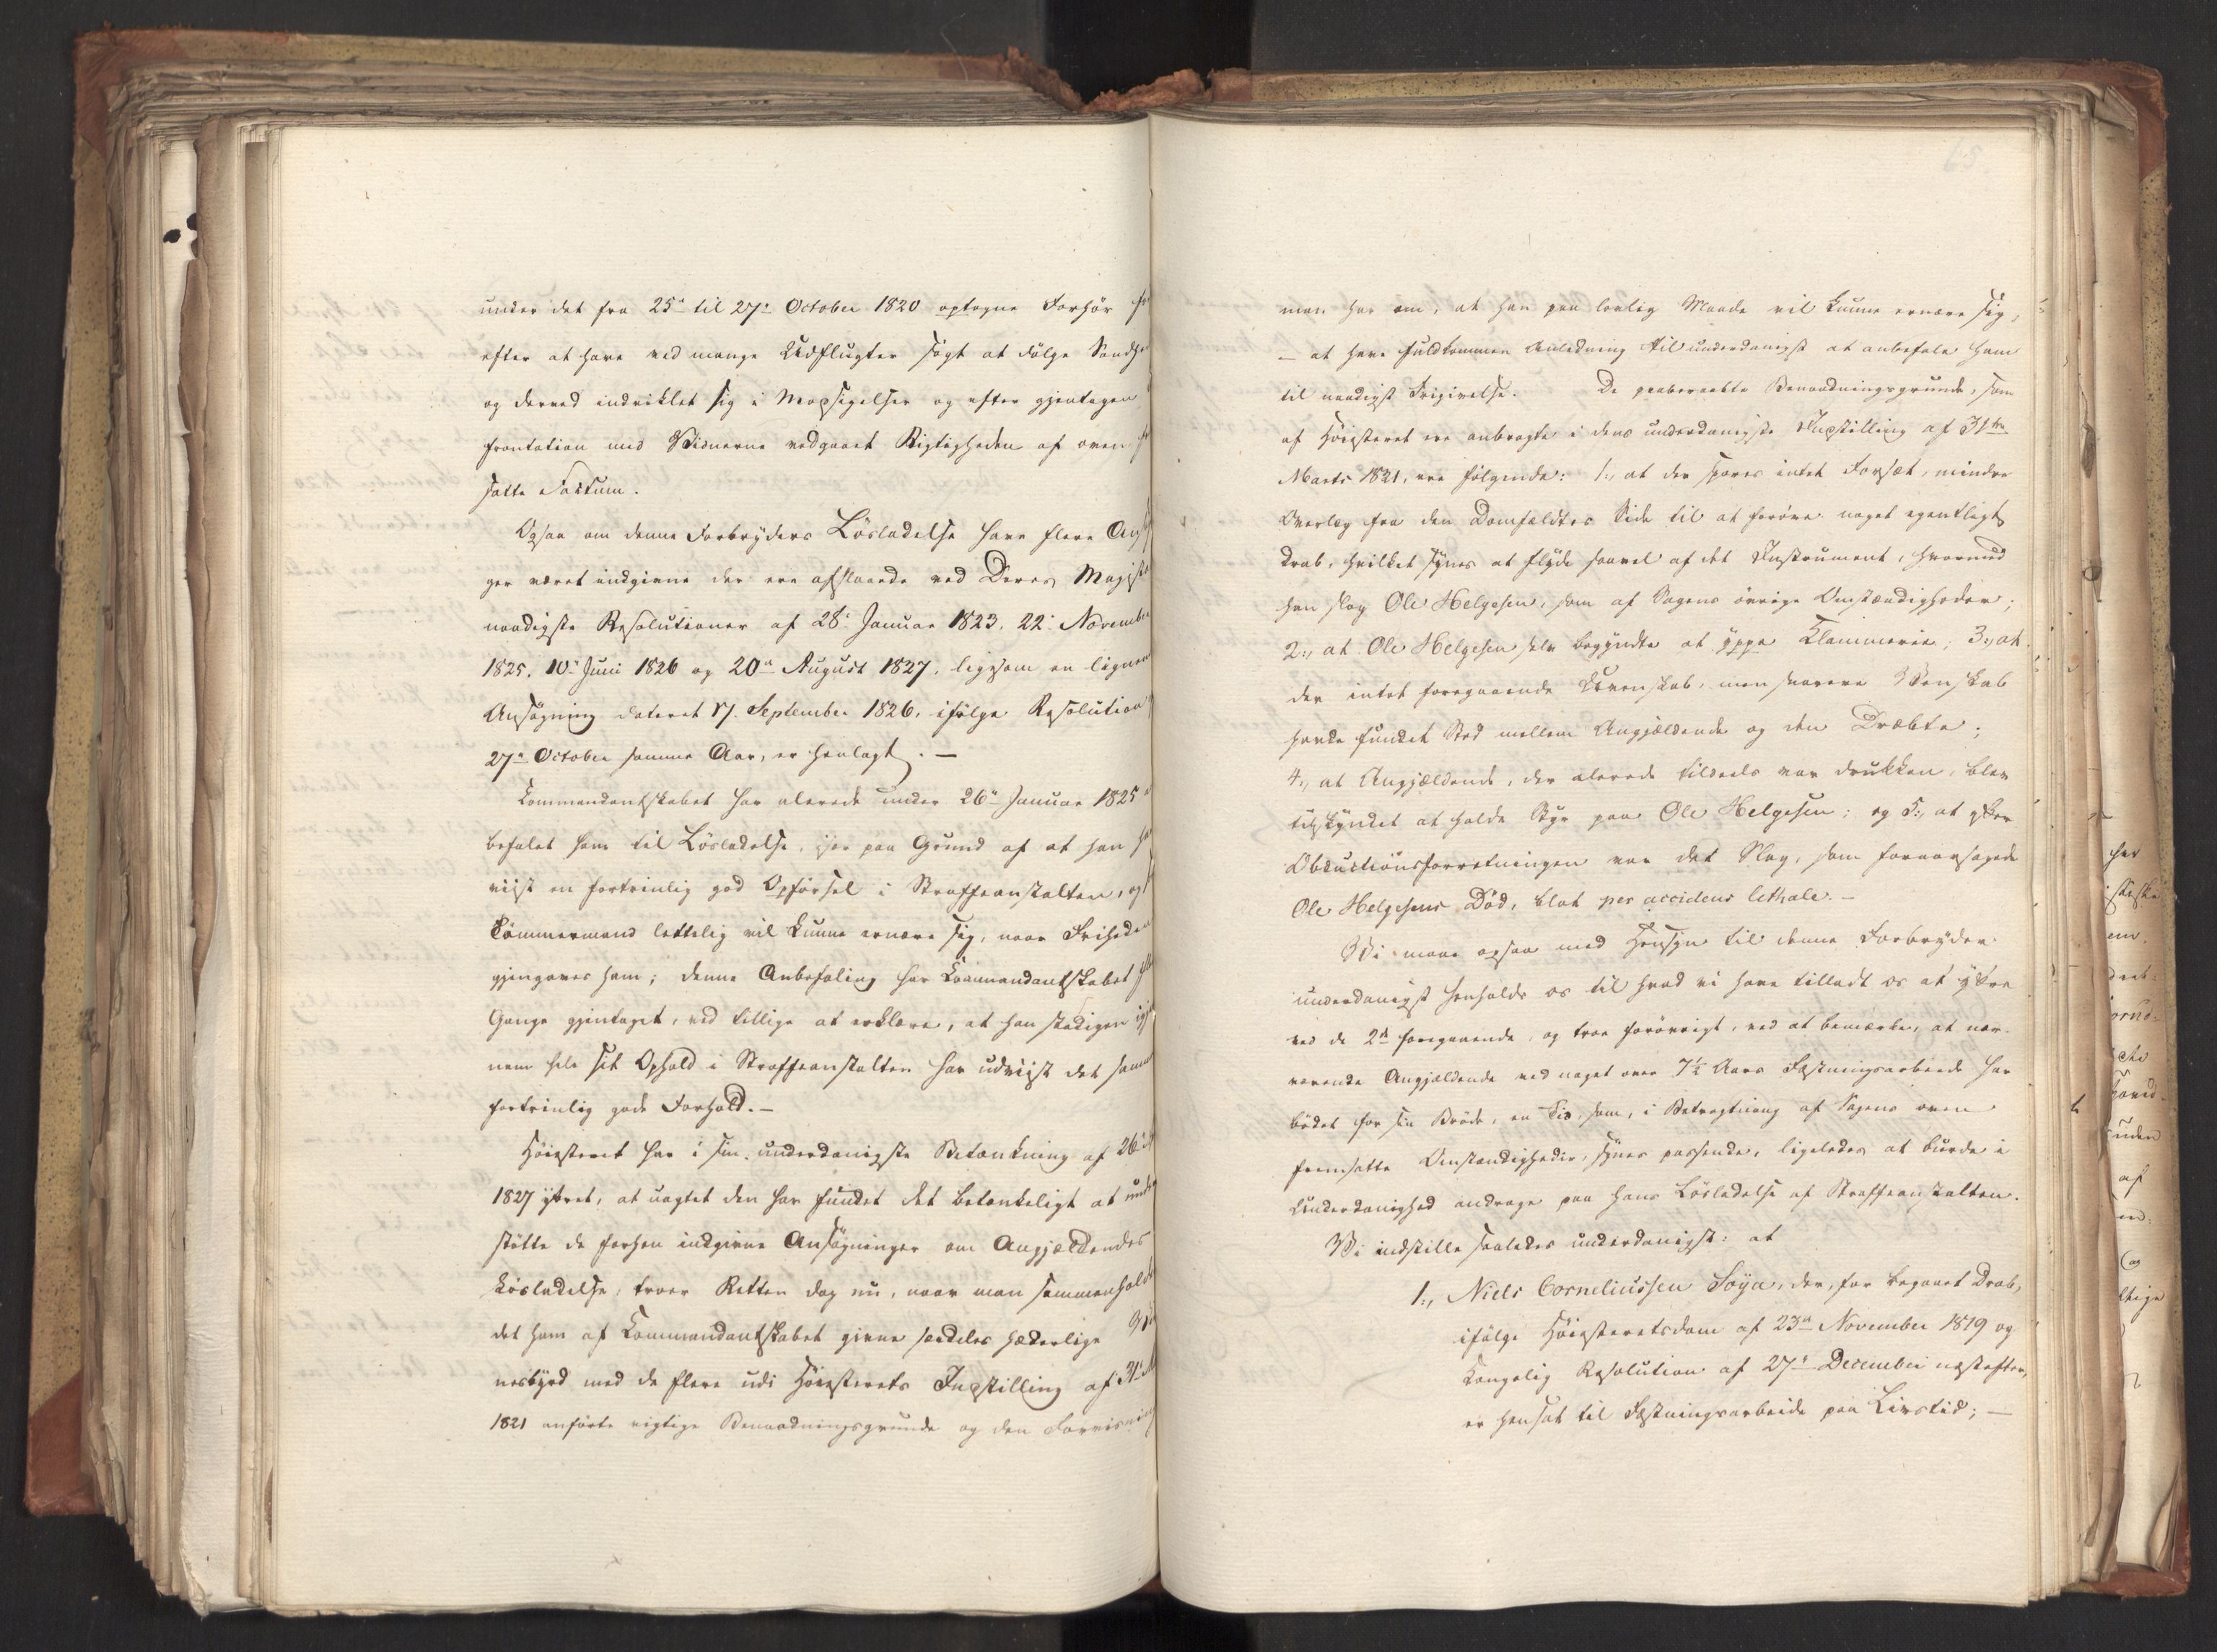 under det fra 25de til 27de October 1820 optagne Forhör
efter at have ved mange Udflugter sögt at dölge Sandhe
og derved indviklet sig i Modsigelser og efter gjentagen
frontation med Vidnerne vedgaaet Rigtigheden af oven
satte Factum.
Ogsaa om denne Forbryders Lösladelse have flere Ansö
ger været indgivne der ere afslaaede ved Deres Majest
naadigste Resolutioner af 28de Januar 1823, 22de November
1825, 10de Juni 1826 og 20de August 1827, ligesom en lignen
Ansögning dateret 17. September 1826, ifölge Resolution
27de October samme Aar, er henlagt. —
Commandantskabet har allerede under 26de Januar 1825
befalet ham til Lösladelse, især paa Grund af at han ha
viist en fortrinlig god Opförsel i Straffeanstalten, og
Tömmermand lettelig vil kunne ernære sig, naar Friheden
gjengaves ham; denne Anbefaling har Commandantskabet fle
Gange gjentaget, ved tillige at erklære, at han stedigen igj
nem hele sit Ophold i Straffeanstalten har udviist det samme
fortrinlig gode Forhold. —
Höiesteret har i sin underdanigste Betænkning af 26de
1827 ÿtret, at uagtet den har fundet det betænkeligt at under
stötte de forhen indgivne Ansögninger om Angjældendes
Lösladelse, troer Retten dog nu, naar man sammenholde
det ham af Commandantskabet givne særdeles hæderlige Vid
nesbÿrd med de flere udi Höiesterets Indstilling af 31te M
1821 anförte vigtige Benaadningsgrunde og den Forvisning
man har om, at han paa lovlig Maade vil kunne ernære sig,
— at have fuldkommen Anledning til underdanigst at anbefale ham
til naadigst Frigivelse. De paaberaabte Benaadningsgrunde, som
af Höiesteret ere anbragte i dens underdanigste Indstilling af 31te
Marts 1821, ere fölgende: 1., at der spores intet Forsæt, mindre
Overlæg fra den Domfældtes Side til at foröve noget egentligt
Drab, hvilket sÿnes at flÿde saavel af det Instrument, hvormed
han slog Ole Helgesen, som af Sagens övrige Omstændigheder;
2., at Ole Helgesen selv begÿndte at ÿppe Klammerie; 3., at
der intet foregaaende Uvenskab, men snarere Venskab
havde fundet Sted mellem Angjældende og den Dræbte;
4., at Angjældende, der allerede tildeels var drukken, blev
tilskÿndet at holde Stÿr paa Ole Helgesen; og 5., at efter
Obductionsforretningen var det Slag, som foraarsagede
Ole Helgesens Död, blot per accidens lethale. —
Vi maae ogsaa med Hensÿn til denne Forbrÿder
underdanigst henholde os til hvad vi have tilladt os at ÿttre
ved de 2de foregaaende, og troe forövrigt, ved at bemærke, at nær
værende Angjældende ved noget over 7½ Aars Fæstningsarbeide har
bödet for sin Bröde, en Tid, som, i Betragtning af Sagens oven
fremsatte Omstændigheder, sÿnes passende, ligeledes at burde i
Underdanighed andrage paa hans Lösladelse af Straffeanstalten.
Vi indstille saaledes underdanigst: at
1., Niels Corneliussen Soÿa, der, for begaaet Drab,
ifölge Höiesteretsdom af 23de November 1819 og
Kongelig Resolution af 27de December næstefter,
er hensat til Fæstningsarbeide paa Livstid; —